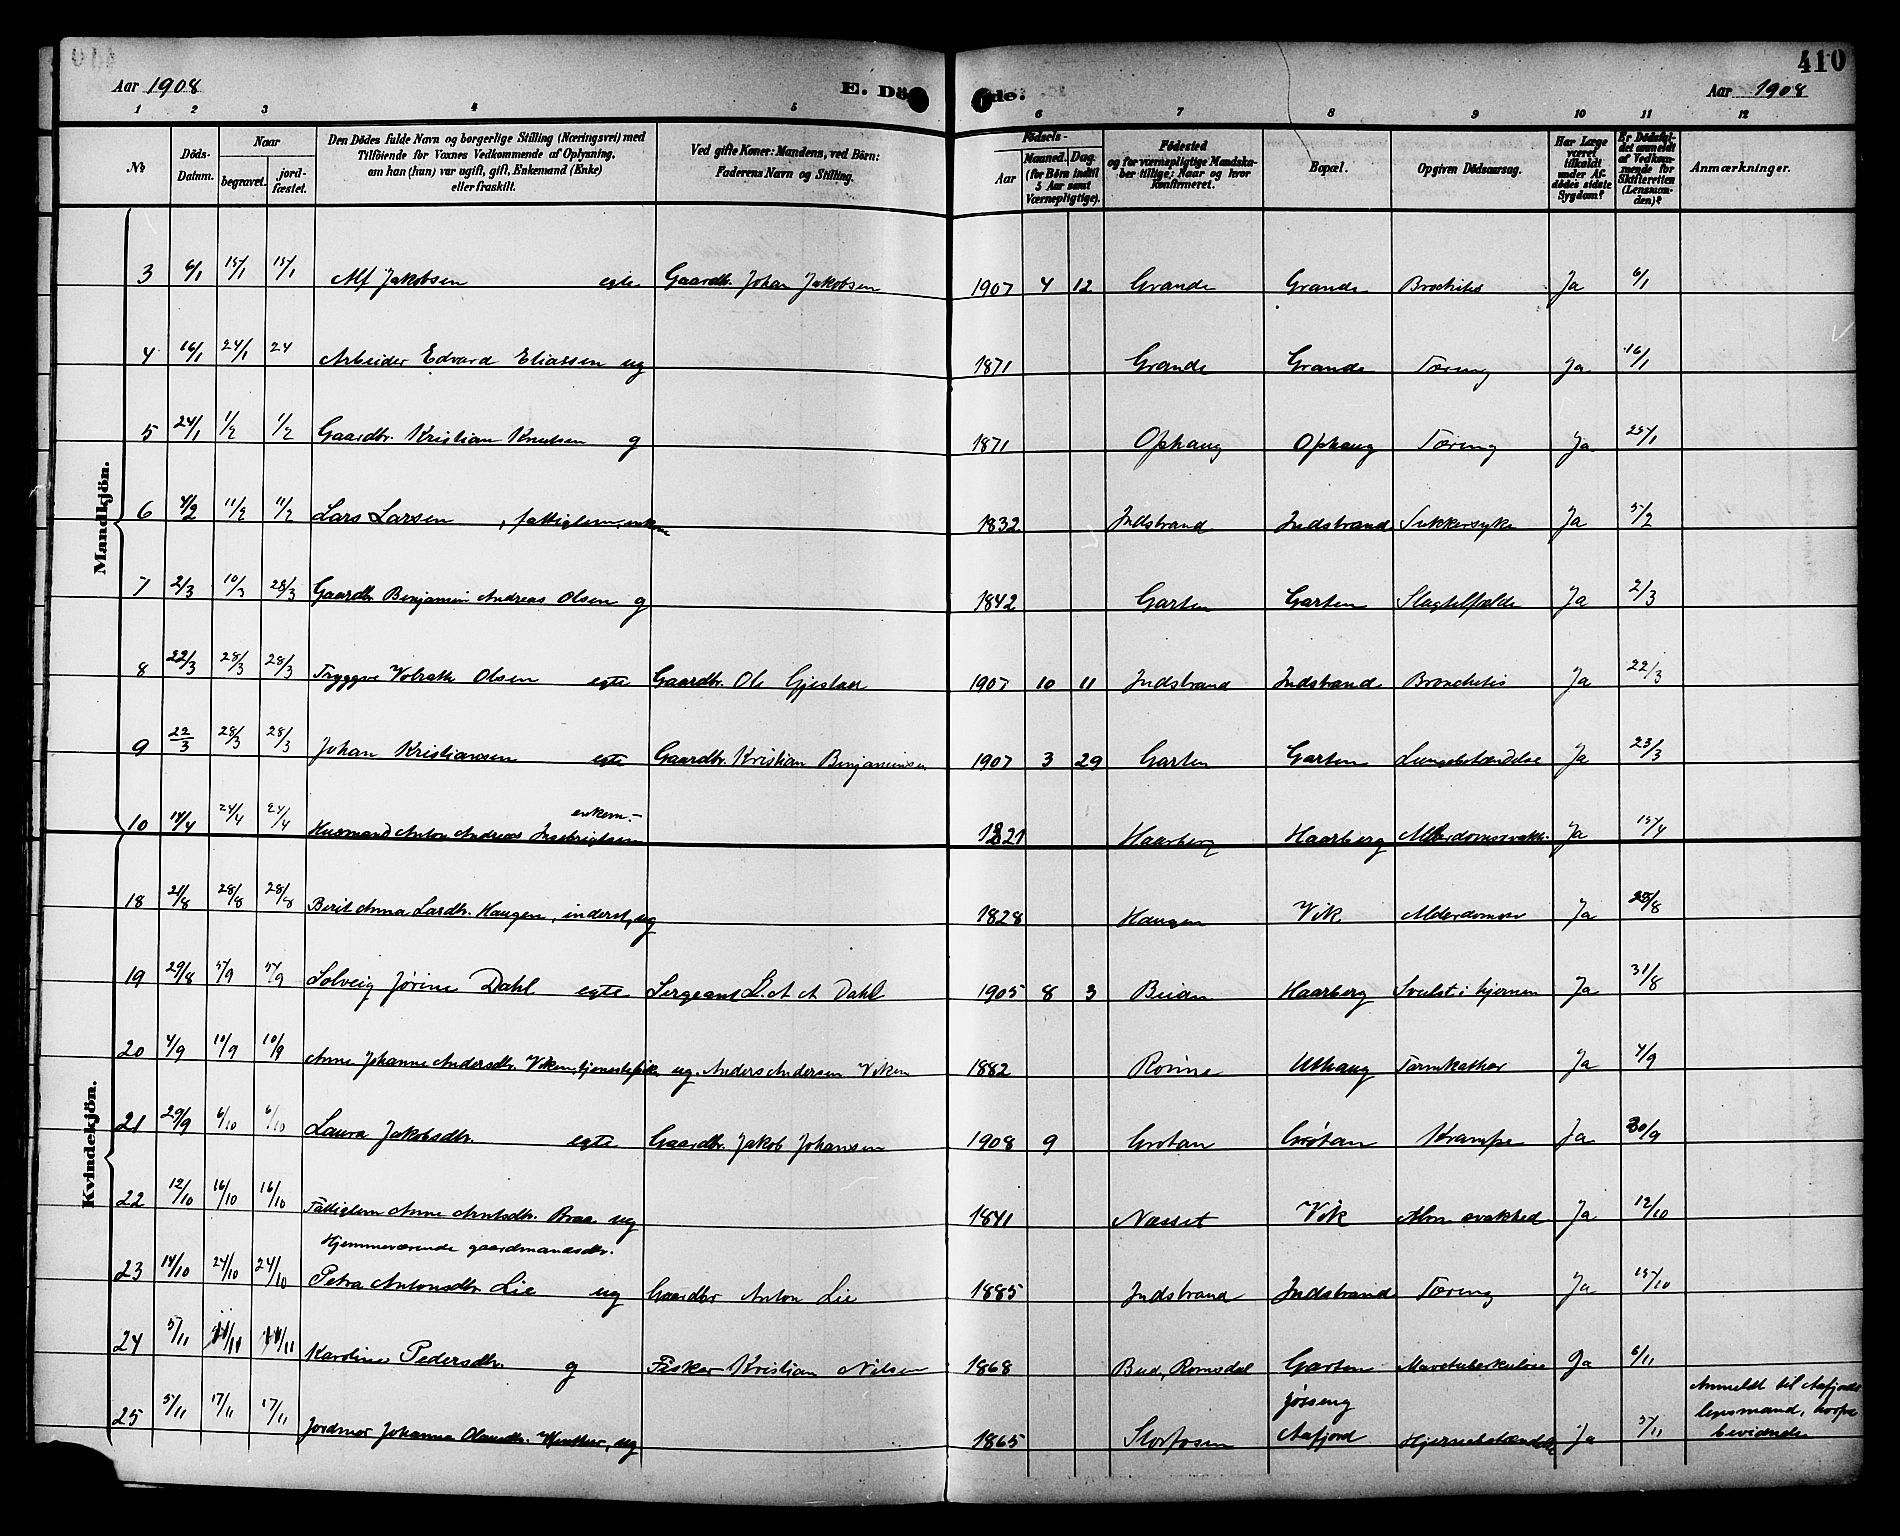 410
Aar 1908
E. Döde.
Aar 1908
1 2 3 4 5 6 7 8 9 10 11 12
No
Döds-Datum.
Naar
begravet.
jordfæstet.
Den Dödes fulde Navn og borgerlige Stilling (Næringsvei) med
Tilföiende for Voxnes Vedkommende af Oplysning,
om han (hun) var ugift, gift, Enkemand (Enke)
eller fraskilt.
Ved gifte Koner: Mandens, ved Börn:
Faderens Navn og Stilling.
Födsels-
Aar
Maaned. Dag.
(for Börn indtil
5 Aar samt
Værnepligtige).
Födested
og for værnepligtige Mandskaber tillige: Naar og hvor
konfirmeret.
Bopæl.
Opgiven Dödsaarsag.
Har Læge
været
tilkaldt
under Afdödes sidste
Sygdom?
Er Dödsfaldet anmeldt
af Vedkommende for
Skifteretten
(Lensmanden)?
Anmærkninger.
Mandkjön.
3 6/1 15/1 15/1 Alf Jakobsen egte Gaardbr. Johan Jakobsen 1907 4 12 Grande Grande Brochitis Ja 6/1
4 16/1 24/1 24 Arbeider Edvard Eliassen ug 1871 Grande Grande Tæring Ja 16/1
5 24/1 1/2 1/2 Gaardbr. Kristian Knutsen g 1871 Ophaug Ophaug Tæring Ja 25/1
6 4/2 11/2 11/2 Lars Larsen, fattiglem, enkem 1832 Indstrand Indstrand Sukkersyke Ja 5/2
7 2/3 10/3 28/3 Gaardbr Benjamin Andreas Olsen g 1842 Garten Garten Slagtilfælde Ja 2/3
8 22/3 28/3 28/3 Tryggve Volrath Olsen egte Gaardbr. Ole Gjestad 1907 10 11 Indstrand Indstrand Bronchitis Ja 22/3
9 22/3 28/3 28/3 Johan Kristiansen egte Gaardbr. Kristian Benjaminsen 1907 3 29 Garten Garten Lungebetændelse Ja 23/3
enkem.-
10 14/4 24/4 24/4 Husmand Anton Andreas Ingebrigtsen 1821 Haarberg Haarberg Alderdomssvakh. Ja 15/4
Kvindekjön.
18 21/8 28/8 28/8 Berit Anna Larsdtr. Haugen, inderst, ug 1828 Haugen Vik Alderdomssv Ja 25/8
19 29/8 5/9 5/9 Solveig Jørine Dahl egte Sergeant L. A A Dahl 1905 8 3 Beian Haarberg Svulst i hjernen Ja 31/8
20 4/9 10/9 10/9 Anne Johanne Andersdtr. Viken, tjenestepike ug. Anders Andersen Viken 1882 Rønne Uthaug Tarmkathar Ja 4/9
21 29/9 6/10 6/10 Laura Jakobsdtr. egte Gaardbr. Jakob Johansen 1908 9 Grøtan Grøtan Krampe Ja 30/9
22 12/10 16/10 16/10 Fattiglem Anne Arntsdtr. Braa ug 1841 Næsset Vik Alm. svakhed Ja 12/10
Hjemmeværende gaardmandsdtr.
23 14/10 24/10 24/10 Petra Antonsdtr Lie ug Gaardbr Anton Lie 1885 Indstrand Indstrand Tæring Ja 15/10
24 5/11 11/11 11/11 Karoline Pedersdtr. g Fisker Kristian Nilsen 1868 Bud, Romsdal Garten Mavetuberkulose Ja 6/11
25 5/11 17/11 17/11 Jordmor Johanna Olausdtr. , ug 1865 Storfosen Jøsseng Aafjord Hjernebetændelse Ja 5/11
Anmeldt til Aafjords
lensmand, hvorfra
bevidnelse